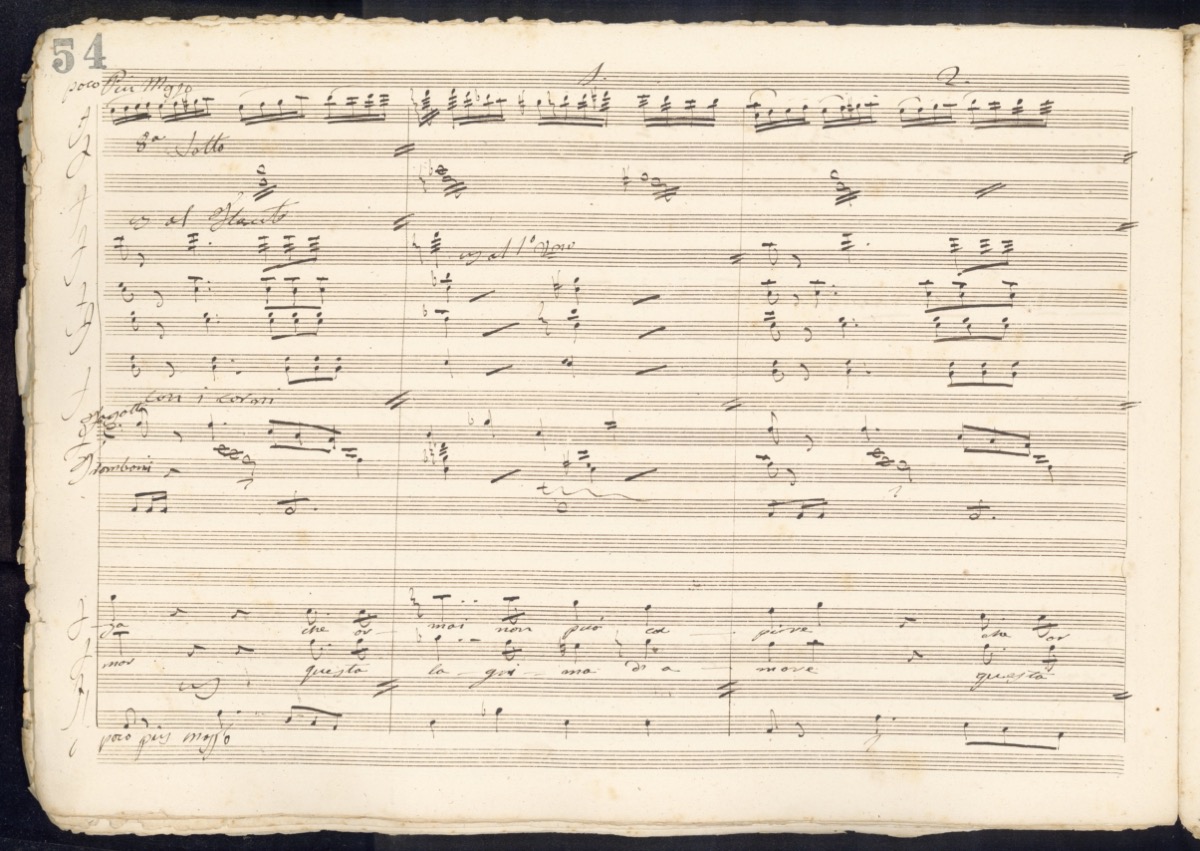 54
poco Più Mosso
1. 2.
8a Sotto
al Flauto
al 1o
con i corni
Fagotti
Tromboni
tr
za che or mai non può col pire che or
mor questa la gri ma di a more questa
poco più mosso